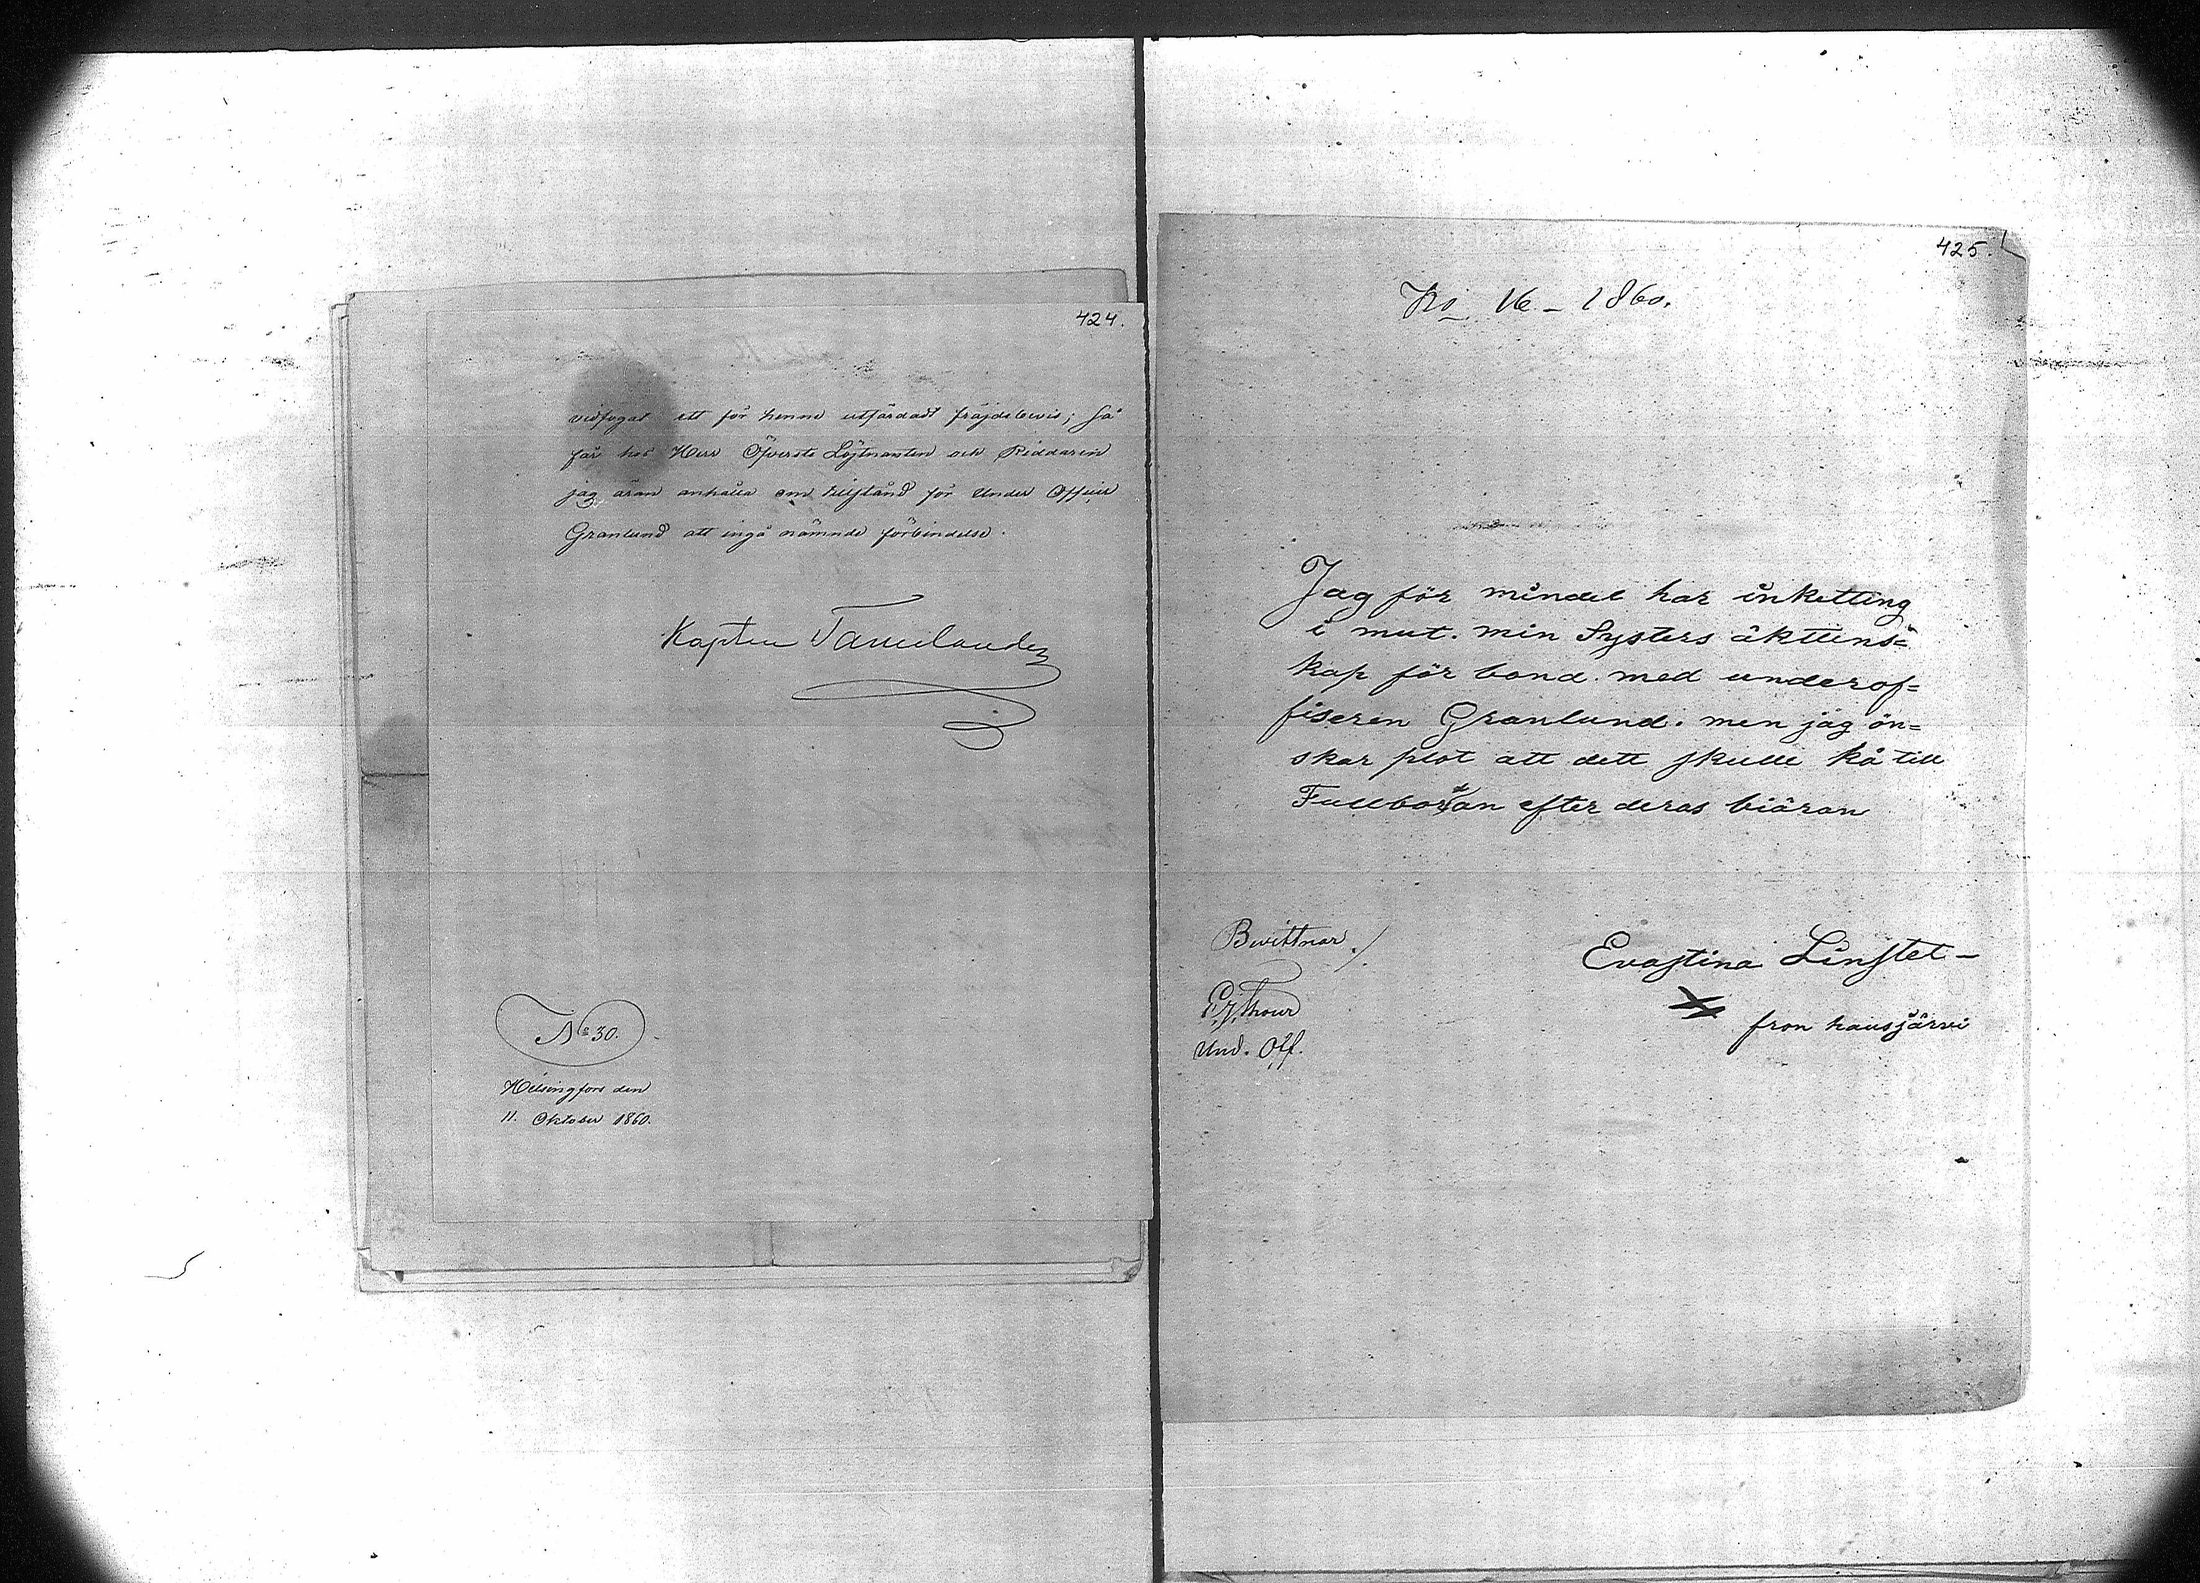 424.
vidfogat ett för henne utfärdadt fräjdebevis; så
får hos Herr Öfverste Löjtnanten och Riddaren
jag äran anhålla om tillstånd för Under Officer
Granlund att ingå nämnde förbindelse.
Kapten
No 30.
Helsingfors den
11. Oktober 1860.
425.
No 16 - 1860.
Jag för mindel har inketting
i mut. min Systers äkttens=
kap för bond. med underof=
fiseren Granlund. men jag ön=
skar plot att dett skulle kå till
Fullbordan efter deras biäran
Bevittnar.
Und. Off.
Evastina Linstet -
fron hausjärvi